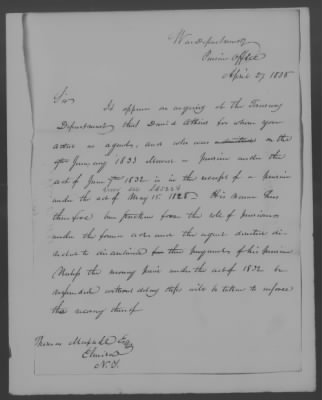 War Department
Pension Office
April 27 1835
Sir
It appears on inquiring at the Treasury
Department that David Atkins for whom you
acted as agent, and who was on the
June 1833 a pension under the
act of June 7th 1832 is in the receipt of a pension
under the act of May 15. 1828. His name has
therefore been stricken from the roll of pensioners
under the former act and the agent directed
to discontinue the payment of his pension
Unless the money paid under the act of 1832 be
refunded without delay steps will be taken to enforce
the recovery thereof
Thomas Maxwell Esq
Elmira
N.Y.